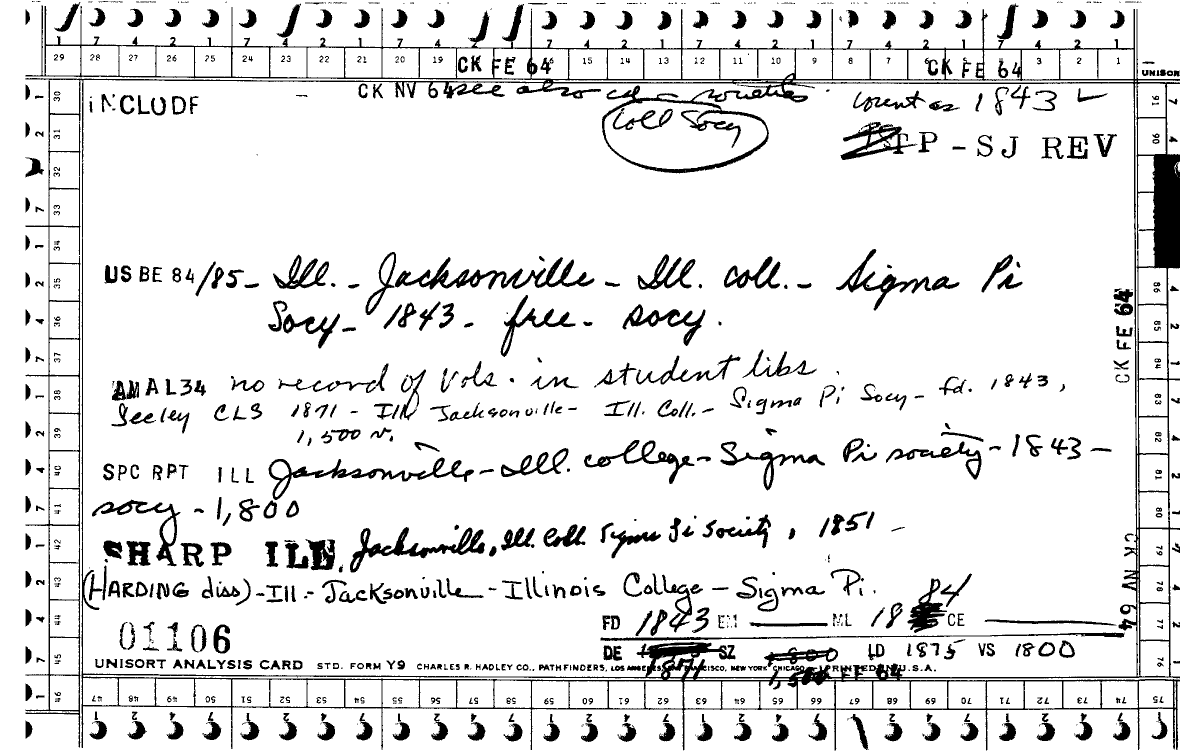 1 7 4 2 1 7 4 2 1 7 4 2 1 7 4 2 1 7 4 2 1 7 4 2 1 7 4 2 1
29 28 27 26 25 24 23 22 21 20 19 CK FE 64 15 14 13 12 11 10 9 8 7 CK FE 64 3 2 1
UNISOR
INCLUDE - CK NV 64 see also ed - societies count as 1843 ✓
Coll Socy
TP - SJ REV
US BE 84/85 - Ill. - Jacksonville - Ill. coll. - Sigma Pi
Socy - 1843 - free - socy.
AM AL 34 no record of vols. in student libs.
Seeley CLS 1871 - Ill Jacksonville - Ill. Coll. - Sigma Pi Socy - fd. 1843,
1,500 v.
SPC RPT ILL Jacksonville - Ill. college - Sigma Pi society - 1843 -
socy - 1,800
SHARP ILL. Jacksonville, Ill. Coll. Sigma Pi Society, 1851 -
(HARDING diss) - Ill - Jacksonville - Illinois College - Sigma Pi.
84
FD 1843 EM ML 18 CE
01106
DE 1871 SZ 1800 LD 1875 VS 1800
1,500 FE 64
UNISORT ANALYSIS CARD STD. FORM Y9 CHARLES R. HADLEY CO., PATHFINDERS, LOS ANGELES, SAN FRANCISCO, NEW YORK, CHICAGO - PRINTED IN U.S.A.
CK FE 64
CK NV 64
47 48 49 50 51 52 53 54 55 56 57 58 59 60 61 62 63 64 65 66 67 68 69 70 71 72 73 74 75